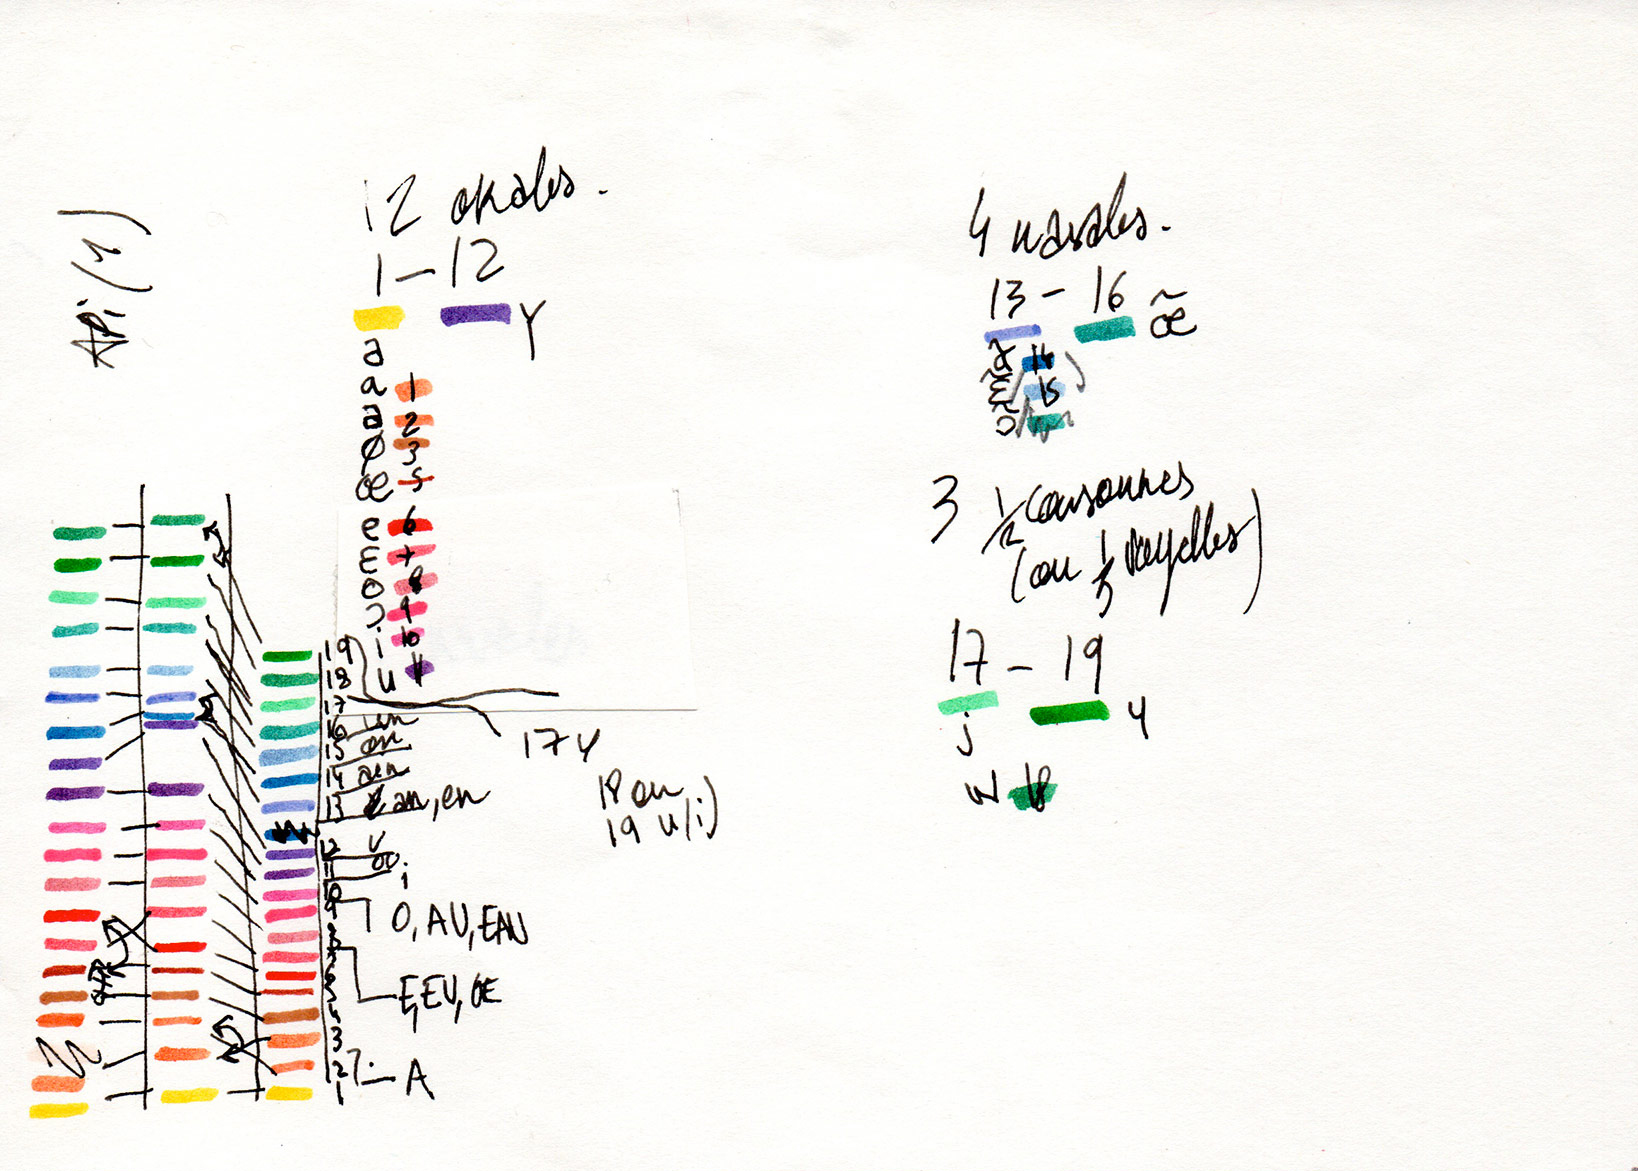 API (1)
12 okales.
1 – 12
Y
a
a 1
a 2
ø 3
œ 5
e 6
ɛ 7
o 8
ɔ 9
i 10
u 11
4 nasales.
13 – 16 œ̃
14
ɛ̃ 15
ɔ̃
3 ½ consonnes
(ou ½ voyelles)
17 – 19
j ɥ
w 18
19
18
17
16 un
15 on
14
13 an, en
12
11 ou
10 i
9
O, AU, EAU
E, EU, OE
3
2
1
A
17 y
18 ou
19 u/i)